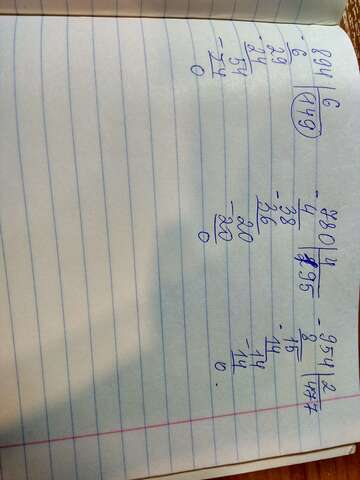 -894 | 6
6 | 149
-29
24
-54
54
0
-780 | 4
4 | 195
-38
36
-20
20
0
-954 | 2
8 | 477
-15
14
-14
14
0